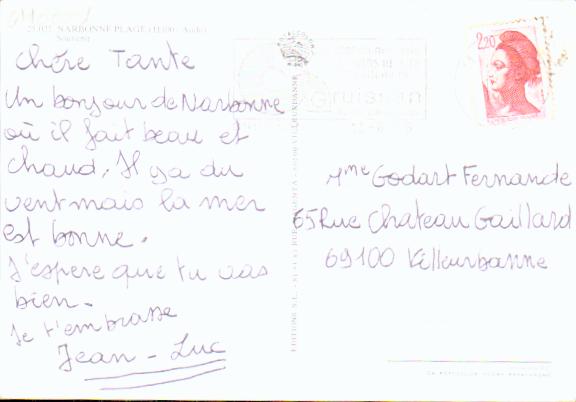 NARBONNE PLAGE (11100 - Aude)
Souvenir
Chère Tante
Un bonjour de Narbonne
où il fait beau et
chaud. Il y a du
vent mais la mer
est bonne.
J'espere que tu vas
bien.
Je t'embrasse
Jean - Luc
2,20
Gruissan
Mme Godart Fernande
65 Rue Chateau Gaillard
69100 Villeurbanne